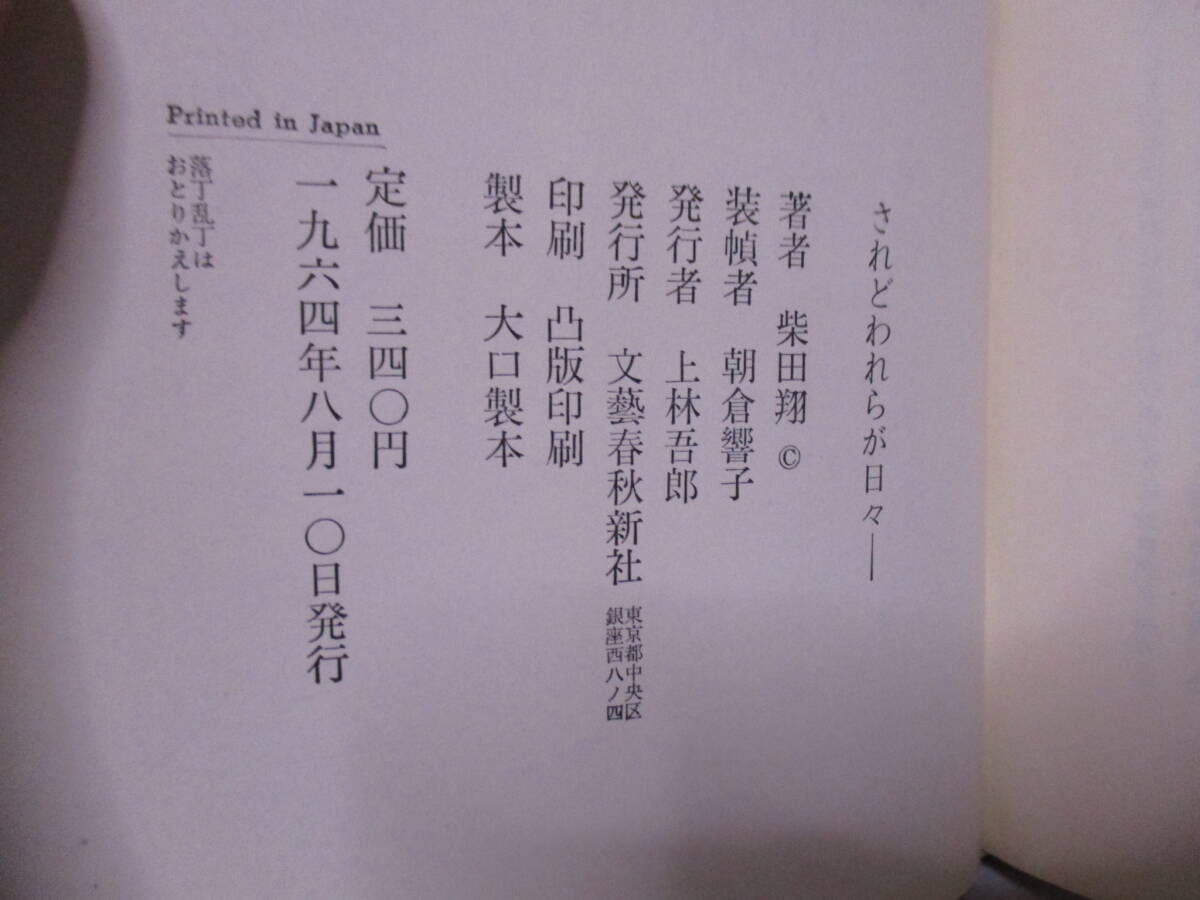 されどわれらが日々――
著者 柴田翔 ©
装幀者 朝倉響子
発行者 上林吾郎
発行所 文藝春秋新社
東京都中央区
銀座西八ノ四
印刷 凸版印刷
製本 大口製本
定価 三四〇円
一九六四年八月一〇日発行
落丁乱丁は
おとりかえします
Printed in Japan